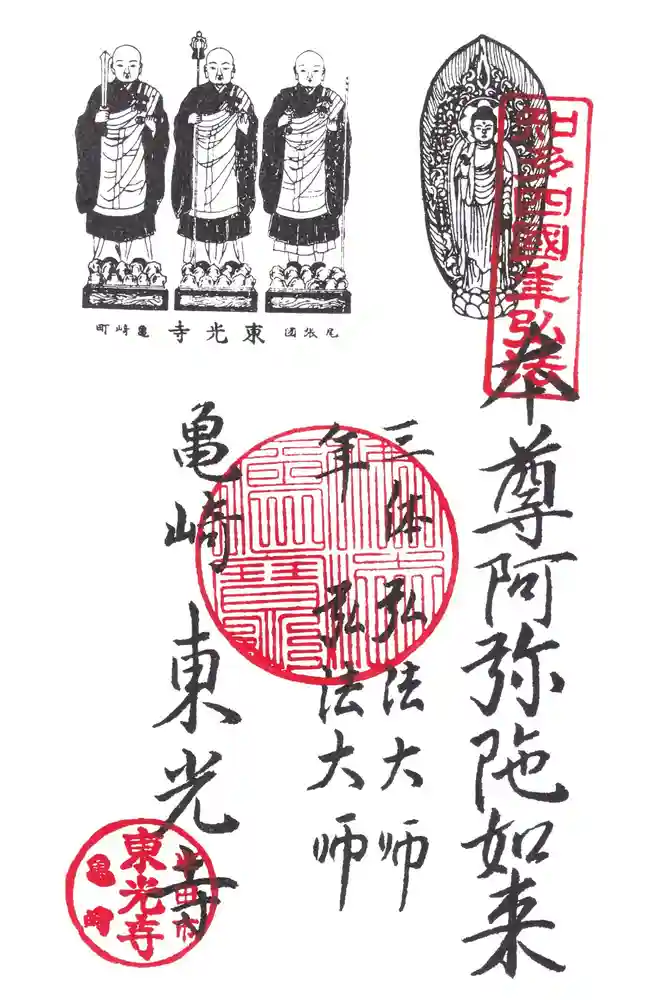 知多四國年弘法
尾張國 東光寺 亀崎町
本尊阿弥陀如来
三体弘法大师
年弘法大师
亀崎 東光寺
半田市
東光寺
亀崎